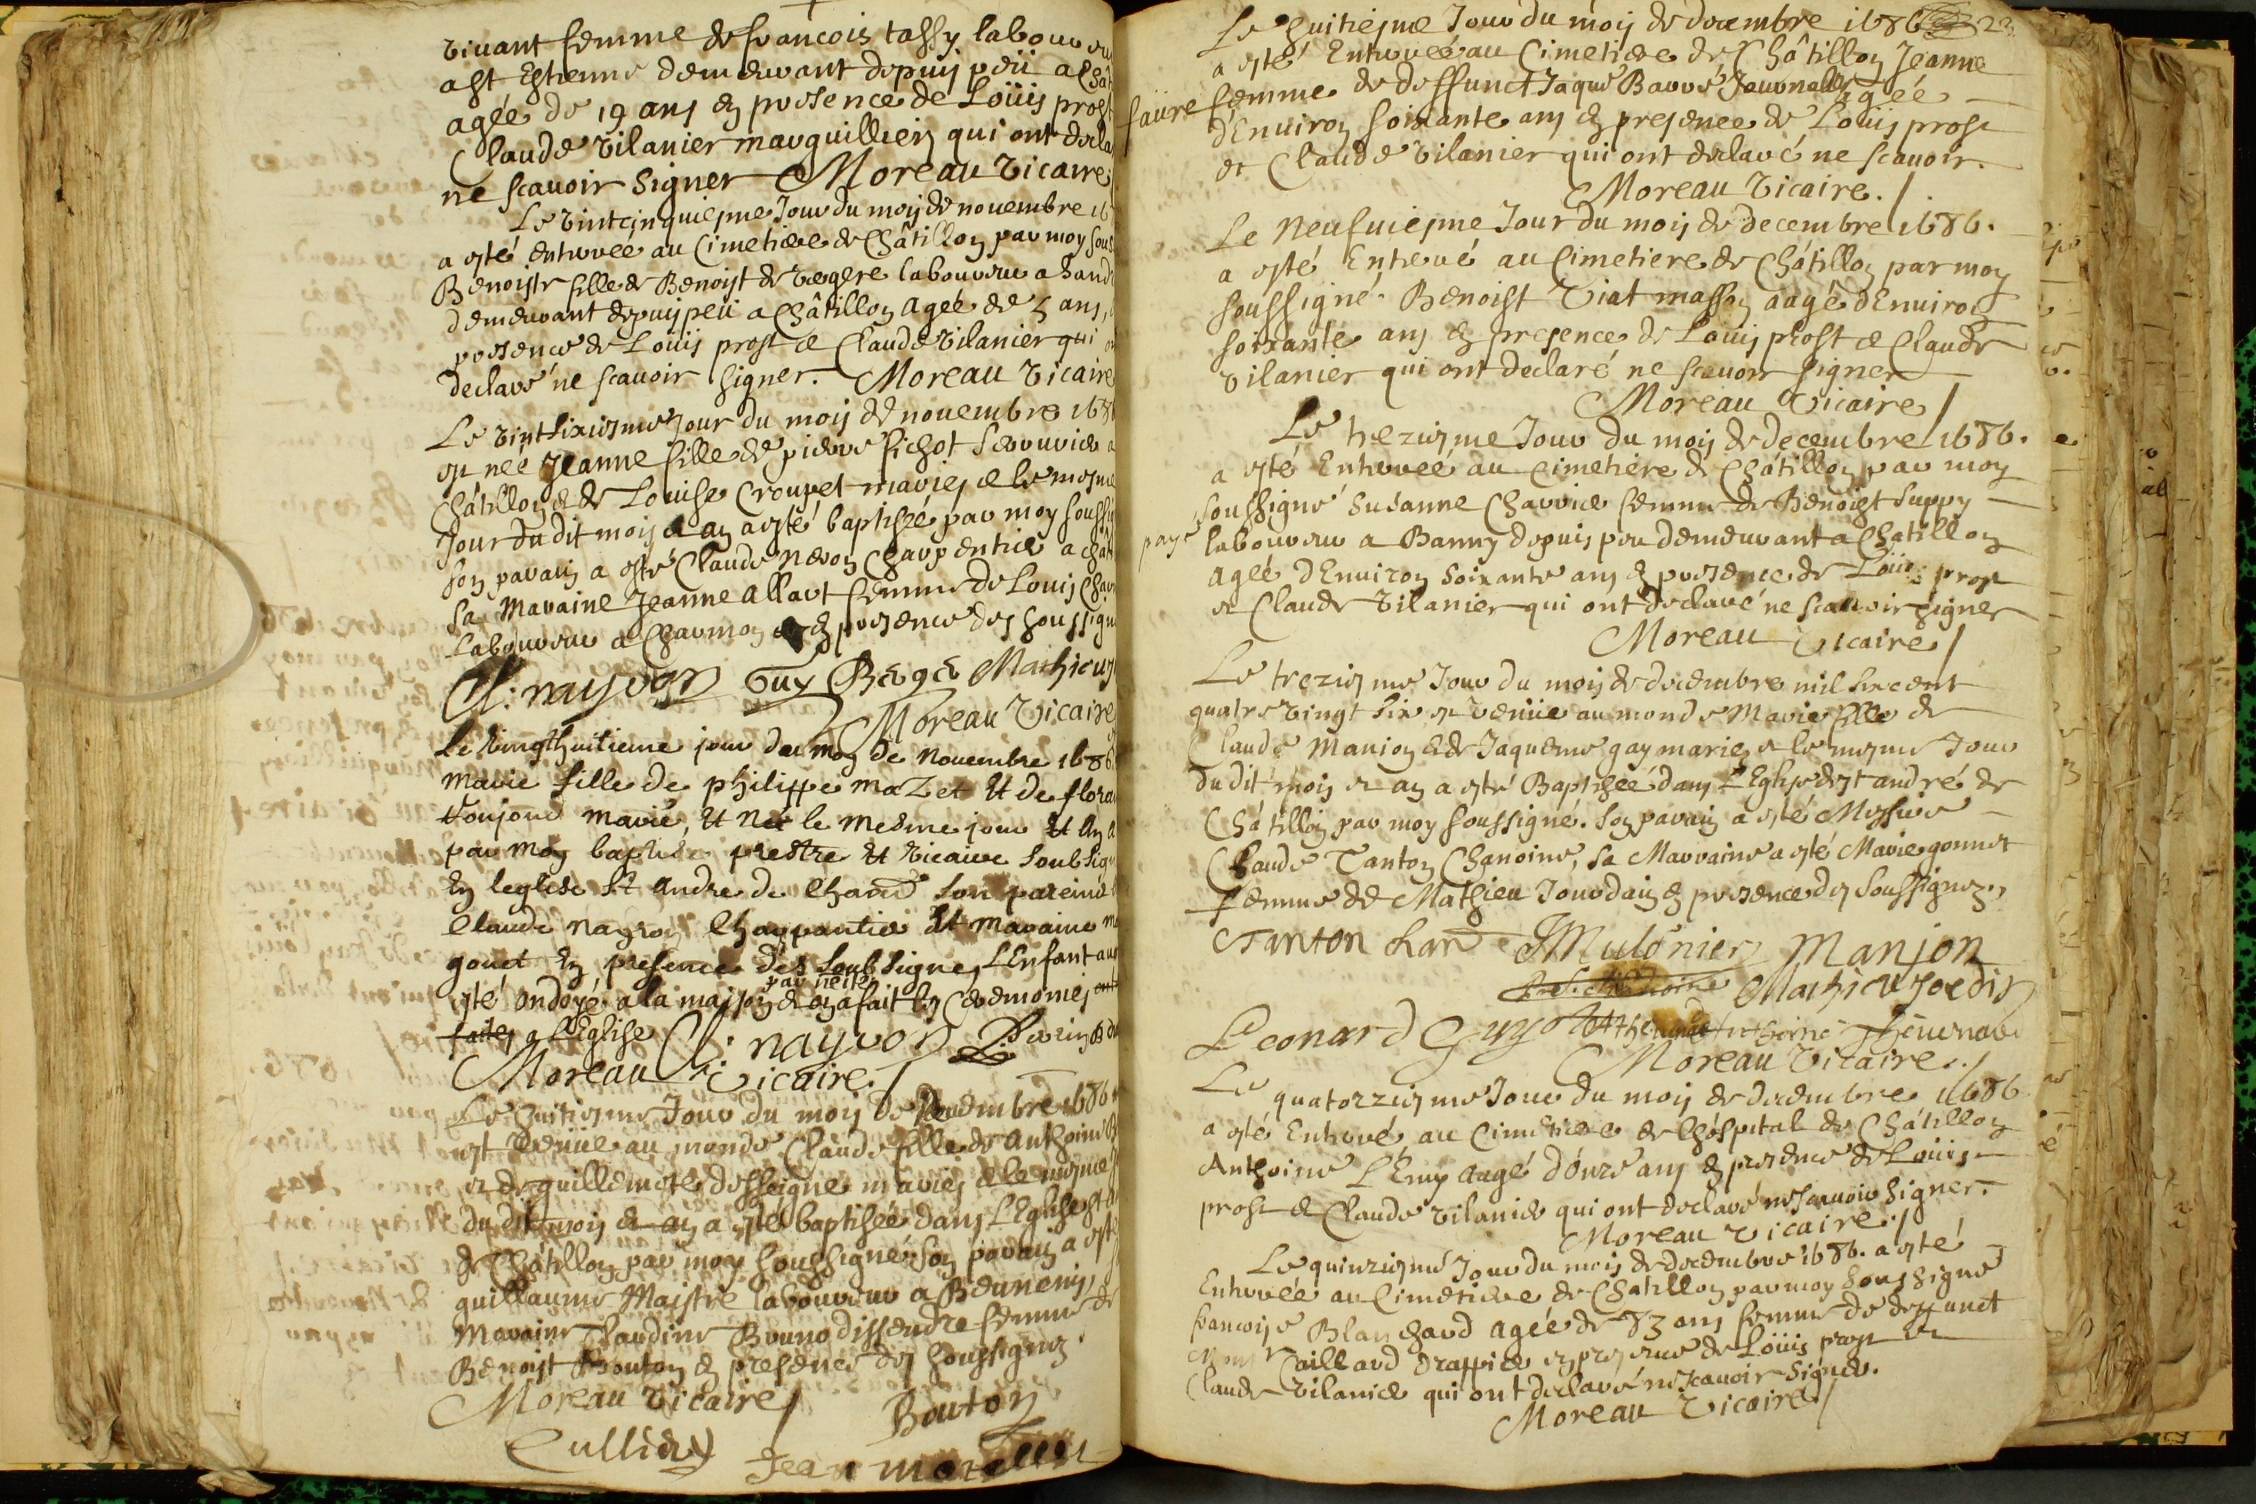 vivant femme de francois tassy laboureur
a st Estienne demeurant depuis peü a Chât
agée de 19 ans en presence de Loüis prost
Claude vilanier marguilliers qui ont decla
ne scavoir signer Moreau vicaire
Le vintcinquiesme Jour du moij de novembre 16
a esté enterrée au Cimetiere de Châtillon par moy sous
Benoiste fille de Benoist de laboureur a
demeurant depuis peü a Châtillon agée de 5 ans,
presence de Louis prost et Claude vilanier qui on
declaré ne scavoir signer. Moreau vicaire
Le vintsixiesme Jour du mois de novembre 1686
est neé Jeanne fille de pierre fichot serrurier a
Châtillon et de Louise Croupet mariés et le mesme
Jour dudit mois et an a esté baptisée par moy soussig
son parain a esté Claude neron Charpentier a Chât
sa maraine Jeanne allart femme de Louis Char
Laboureur a Charmon en presence des soussigne
Cl: nayron Guy Mathieu
Moreau vicaire
Le vingthuitieme jour du moy de novembre 1686
marie fille de philippe mazet et de flora
toujour marié, et née le mesme jour et an a
par moy baptisée prestre et vicaire soubsign
en leglise st andre de son pareind
Claude nayron Charpantier et maraine ma
gonet en presence des soubsignes, L'Enfant aura
par nessté
esté ondoyé a la maison et on a fait les Ceremonies
faites a l'Eglise Cl: nayron Perin
Moreau vicaire./
Le huitiesme Jour du mois de decembre 1686
est venüe au monde Claude fille de anthoine B
et de guillemete desseigne mariés et le mesme J
du dit mois et an a esté baptisée dans L'Eglise st a
de Châtillon par moy soussigné son parain a esté
guillaume Maistre laboureur a
maraine Claudine Bruno dissendre femme de
Benoist Bouton en presence des soussignez.
Moreau vicaire/ Bouton
Cullier Jean
Le huitiesme Jour du mois de decembre 1686 22
a esté Enterrée au Cimetiere de Châtillon Jeanne
faüre femme de deffunct Jaque Journallier agée
d'Environ soixante ans en presence de Loüis prost
et Claude vilanier qui ont declaré ne scavoir.
Moreau vicaire./
Le neufviesme Jour du mois de decembre 1686.
a esté Enterré au Cimetiere de Châtillon par moy
soussigné. Benoist Viat masson aagé d'Environ
soixante ans en presence de Louis prost et Claude
vilanier qui ont declaré ne scavoir signer
Moreau vicaire/
Le treziesme Jour du mois de decembre 1686.
a esté Enterreé au Cimetiere de Châtillon par moy
soussigné Susanne Charvier femme de Benoist Suppy
payé laboureur a Banny depuis peu demeurant a Châtillon
ageé d'Environ soixante ans en presence de Loüis prost
et Claude vilanier qui ont declaré ne scavoir signer
Moreau vicaire/
Le treziesme Jour du mois de decembre mil six cent
quatre vingt six est venüe au monde Marie fille de
Claude Manjon et de Jaqueme gay mariez et le mesme Jour
du dit mois et an a esté Baptisée dans L'Eglise de st andré de
Châtillon par moy soussigné. son parain a esté Messire
Claude Tanton Chanoine, sa Marraine a esté Marie gonnet
femme de Mathieu Jourdain en presence des soussignez,
Tanton Mulonier Manjon
Mathieu Joedin
Leonard Guyot
Moreau vicaire./
Le quatorziesme Jour du mois de decembre 1686
a esté Enterré au Cimetiere de l'hôspital de Châtillon
Anthoine L'Emy aagé d'onze ans en presence de Louis
prost et Claude vilanier qui ont declaré ne scavoir signer.
Moreau vicaire./
Le quinziesme Jour du mois de decembre 1686. a esté
Enterrée au Cimetiere de Châtillon par moy soussigné
francoise Blanchard agée de 83 ans femme de deffunct
Caillard Drappier en presence de Loüis prost et
Claude vilanier qui ont declaré ne scavoir signer.
Moreau vicaire/